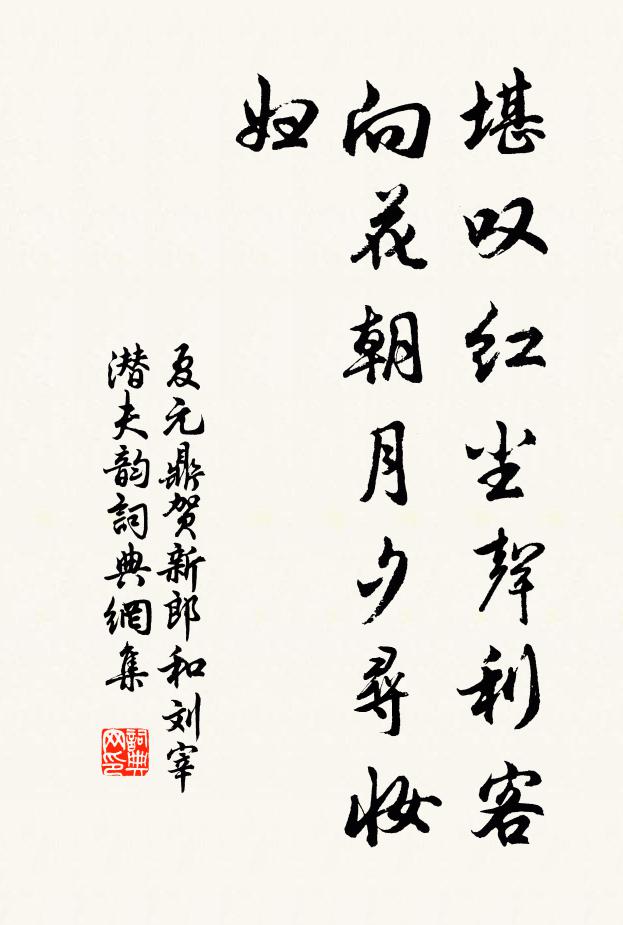 堪叹红尘聲利客
向花朝月夕尋妝
妇
夏元鼎贺新郎和刘宰
潜夫韵詞典網集
詞典网印